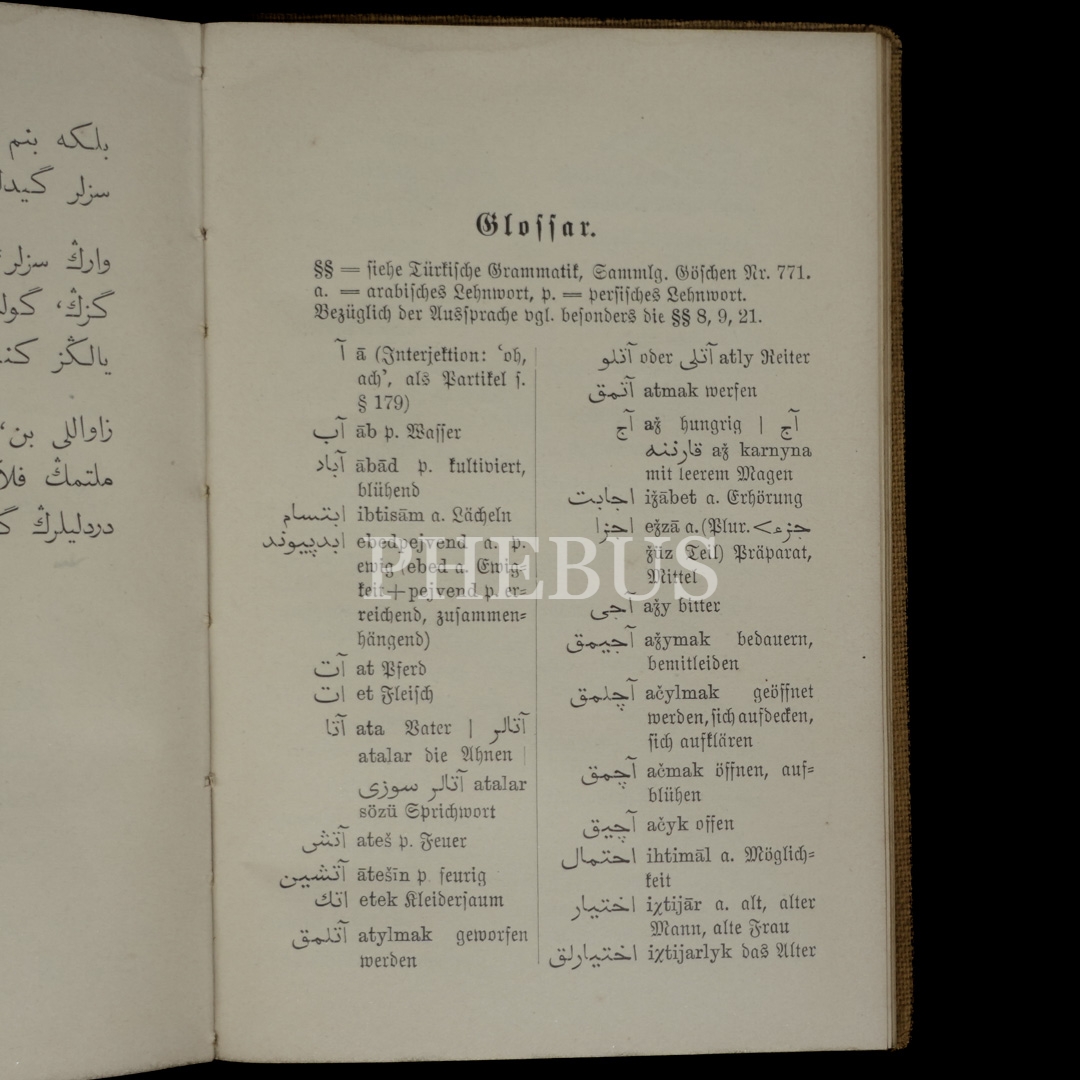 بلكه بنم
سزلر
وارڭ سزلر
گزڭ،
يالڭز
زاواللى بن،
ملتمڭ
دردليلرڭ
Glossar.
§§ = siehe Türkische Grammatik, Sammlg. Göschen Nr. 771.
a. = arabisches Lehnwort, p. = persisches Lehnwort.
Bezüglich der Aussprache vgl. besonders die §§ 8, 9, 21.
آ ā (Interjektion: ‘oh,
ach’, als Partikel s.
§ 179)
آب āb p. Wasser
آباد ābād p. kultiviert,
blühend
ابتسام ibtisām a. Lächeln
ابدپيوند ebedpejvend a. p.
ewig (ebed a. Ewig=
keit+pejvend p. er=
reichend, zusammen=
hängend)
آت at Pferd
ات et Fleisch
آتا ata Vater | آتالر
atalar die Ahnen |
آتالر سوزى atalar
sözü Sprichwort
آتش ateš p. Feuer
آتشين ātešīn p. feurig
اتك etek Kleidersaum
آتلمق atylmak geworfen
werden
آتلو oder آتلى atly Reiter
آتمق atmak werfen
آج aǯ hungrig | آج
قارننه aǯ karnyna
mit leerem Magen
اجابت iǯābet a. Erhörung
اجزا eǯzā a. (Plur. < جزء
ǯüz Teil) Präparat,
Mittel
آجى aǯy bitter
آجيمق aǯymak bedauern,
bemitleiden
آچلمق ačylmak geöffnet
werden, sich aufdecken,
sich aufklären
آچمق ačmak öffnen, auf=
blühen
آچيق ačyk offen
احتمال ihtimāl a. Möglich=
keit
اختيار iχtijār a. alt, alter
Mann, alte Frau
اختيارلق iχtijarlyk das Alter
PHEBUS